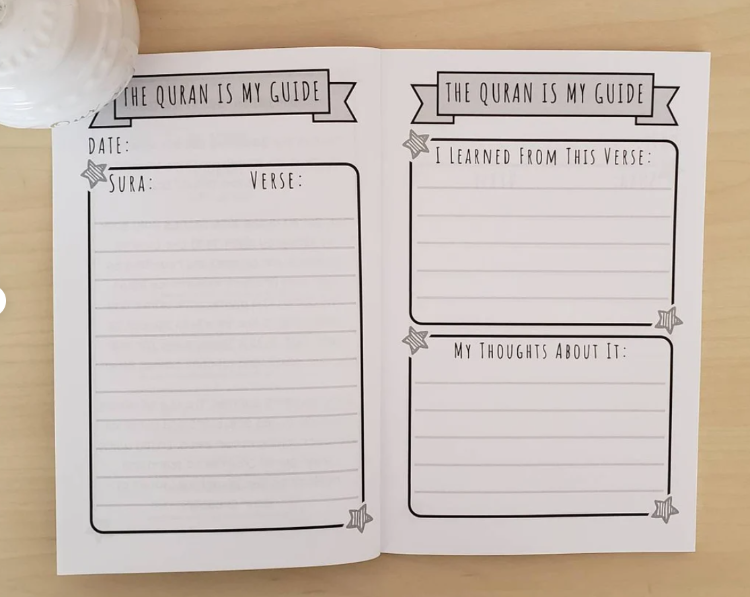 THE QURAN IS MY GUIDE
DATE:
SURA: VERSE:
THE QURAN IS MY GUIDE
I LEARNED FROM THIS VERSE:
MY THOUGHTS ABOUT IT: